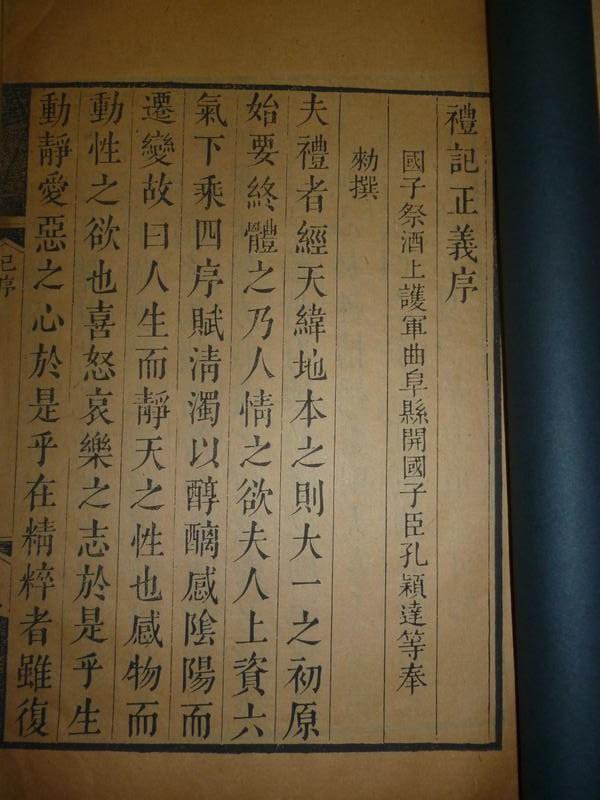 禮記正義序
國子祭酒上護軍曲阜縣開國子臣孔穎達等奉
勑撰
夫禮者經天緯地本之則大一之初原
始要終體之乃人情之欲夫人上資六
氣下乘四序賦清濁以醇醨感陰陽而
遷變故曰人生而靜天之性也感物而
動性之欲也喜怒哀樂之志於是乎生
動靜愛惡之心於是乎在精粹者雖復
記序